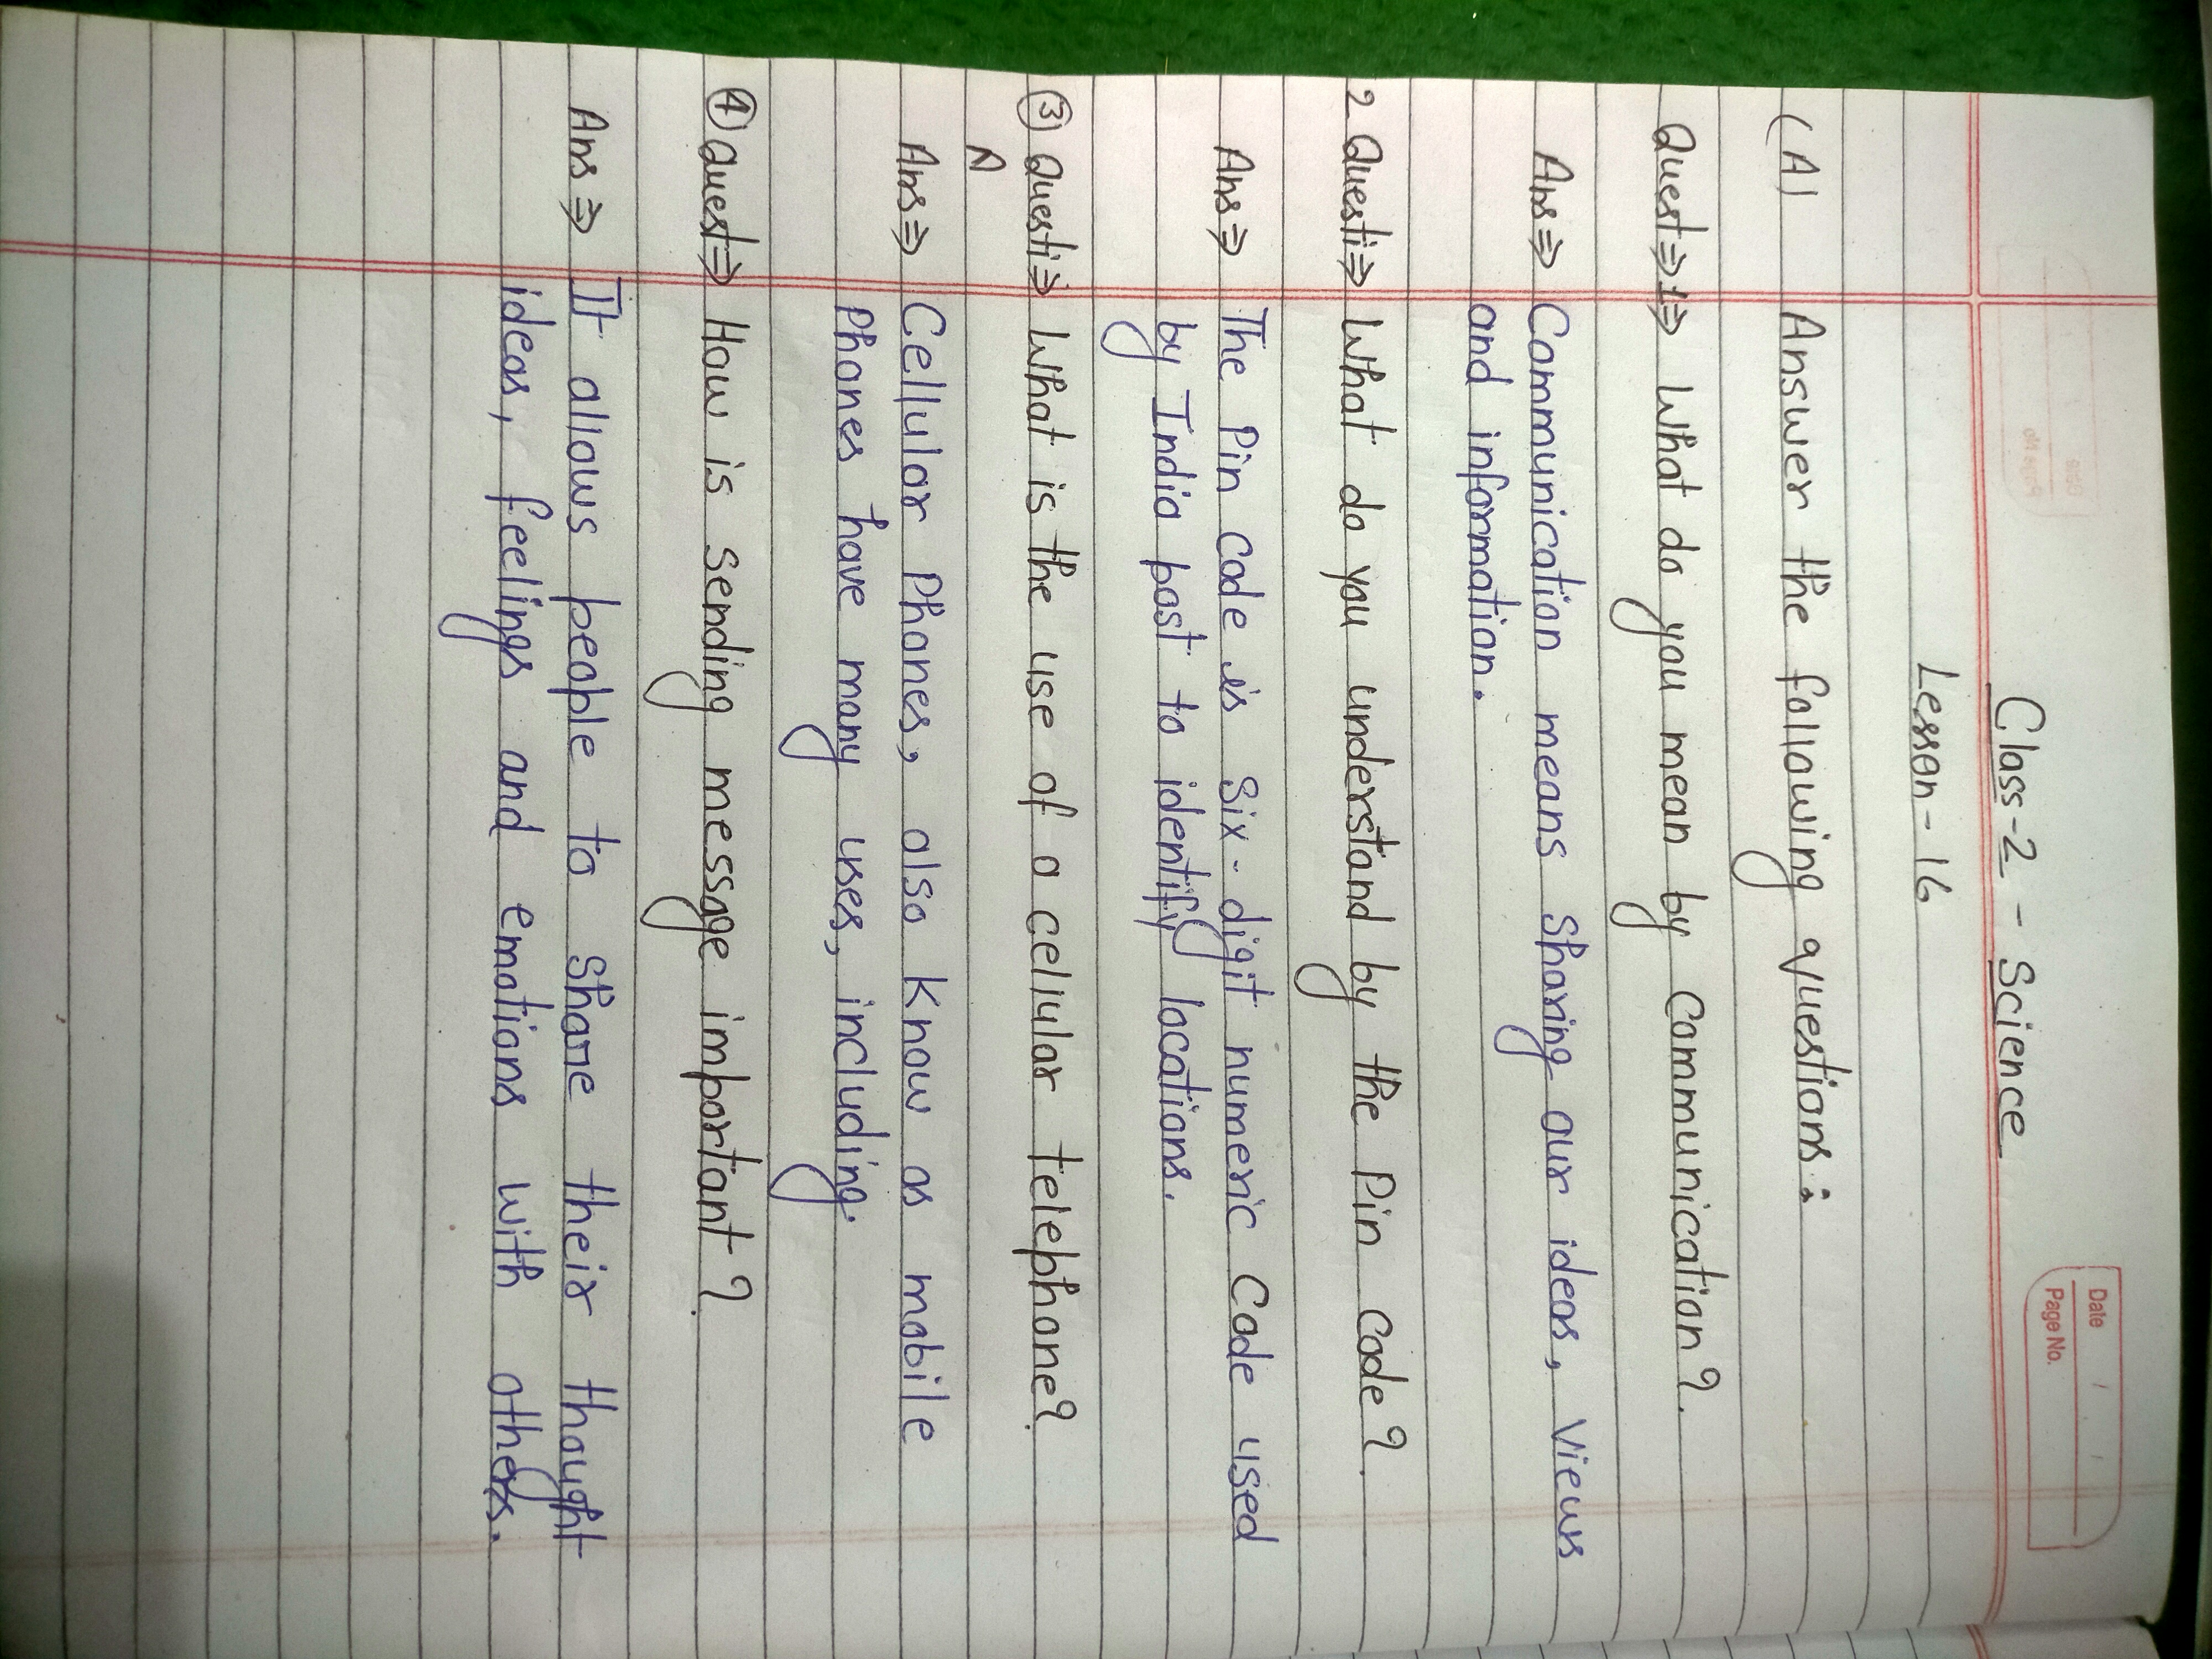 Date / /
Page No.
Class-2 - Science
Lesson-16
(A) Answer the following questions:
Quest⇒1⇒ What do you mean by Communication?
Ans⇒ Communication means sharing our ideas, Views
and information.
2 Questi⇒ What do you understand by the Pin Code?
Ans⇒ The Pin Code is Six-digit numeric Code used
by India post to identify locations.
③ Questi⇒ What is the use of a cellular telephone?
A
Ans⇒ Cellular Phones, also Know as mobile
Phones have many uses, including.
④ Quest⇒ How is sending message important?
Ans⇒ It allows people to share their thought
ideas, feelings and emotions with others.